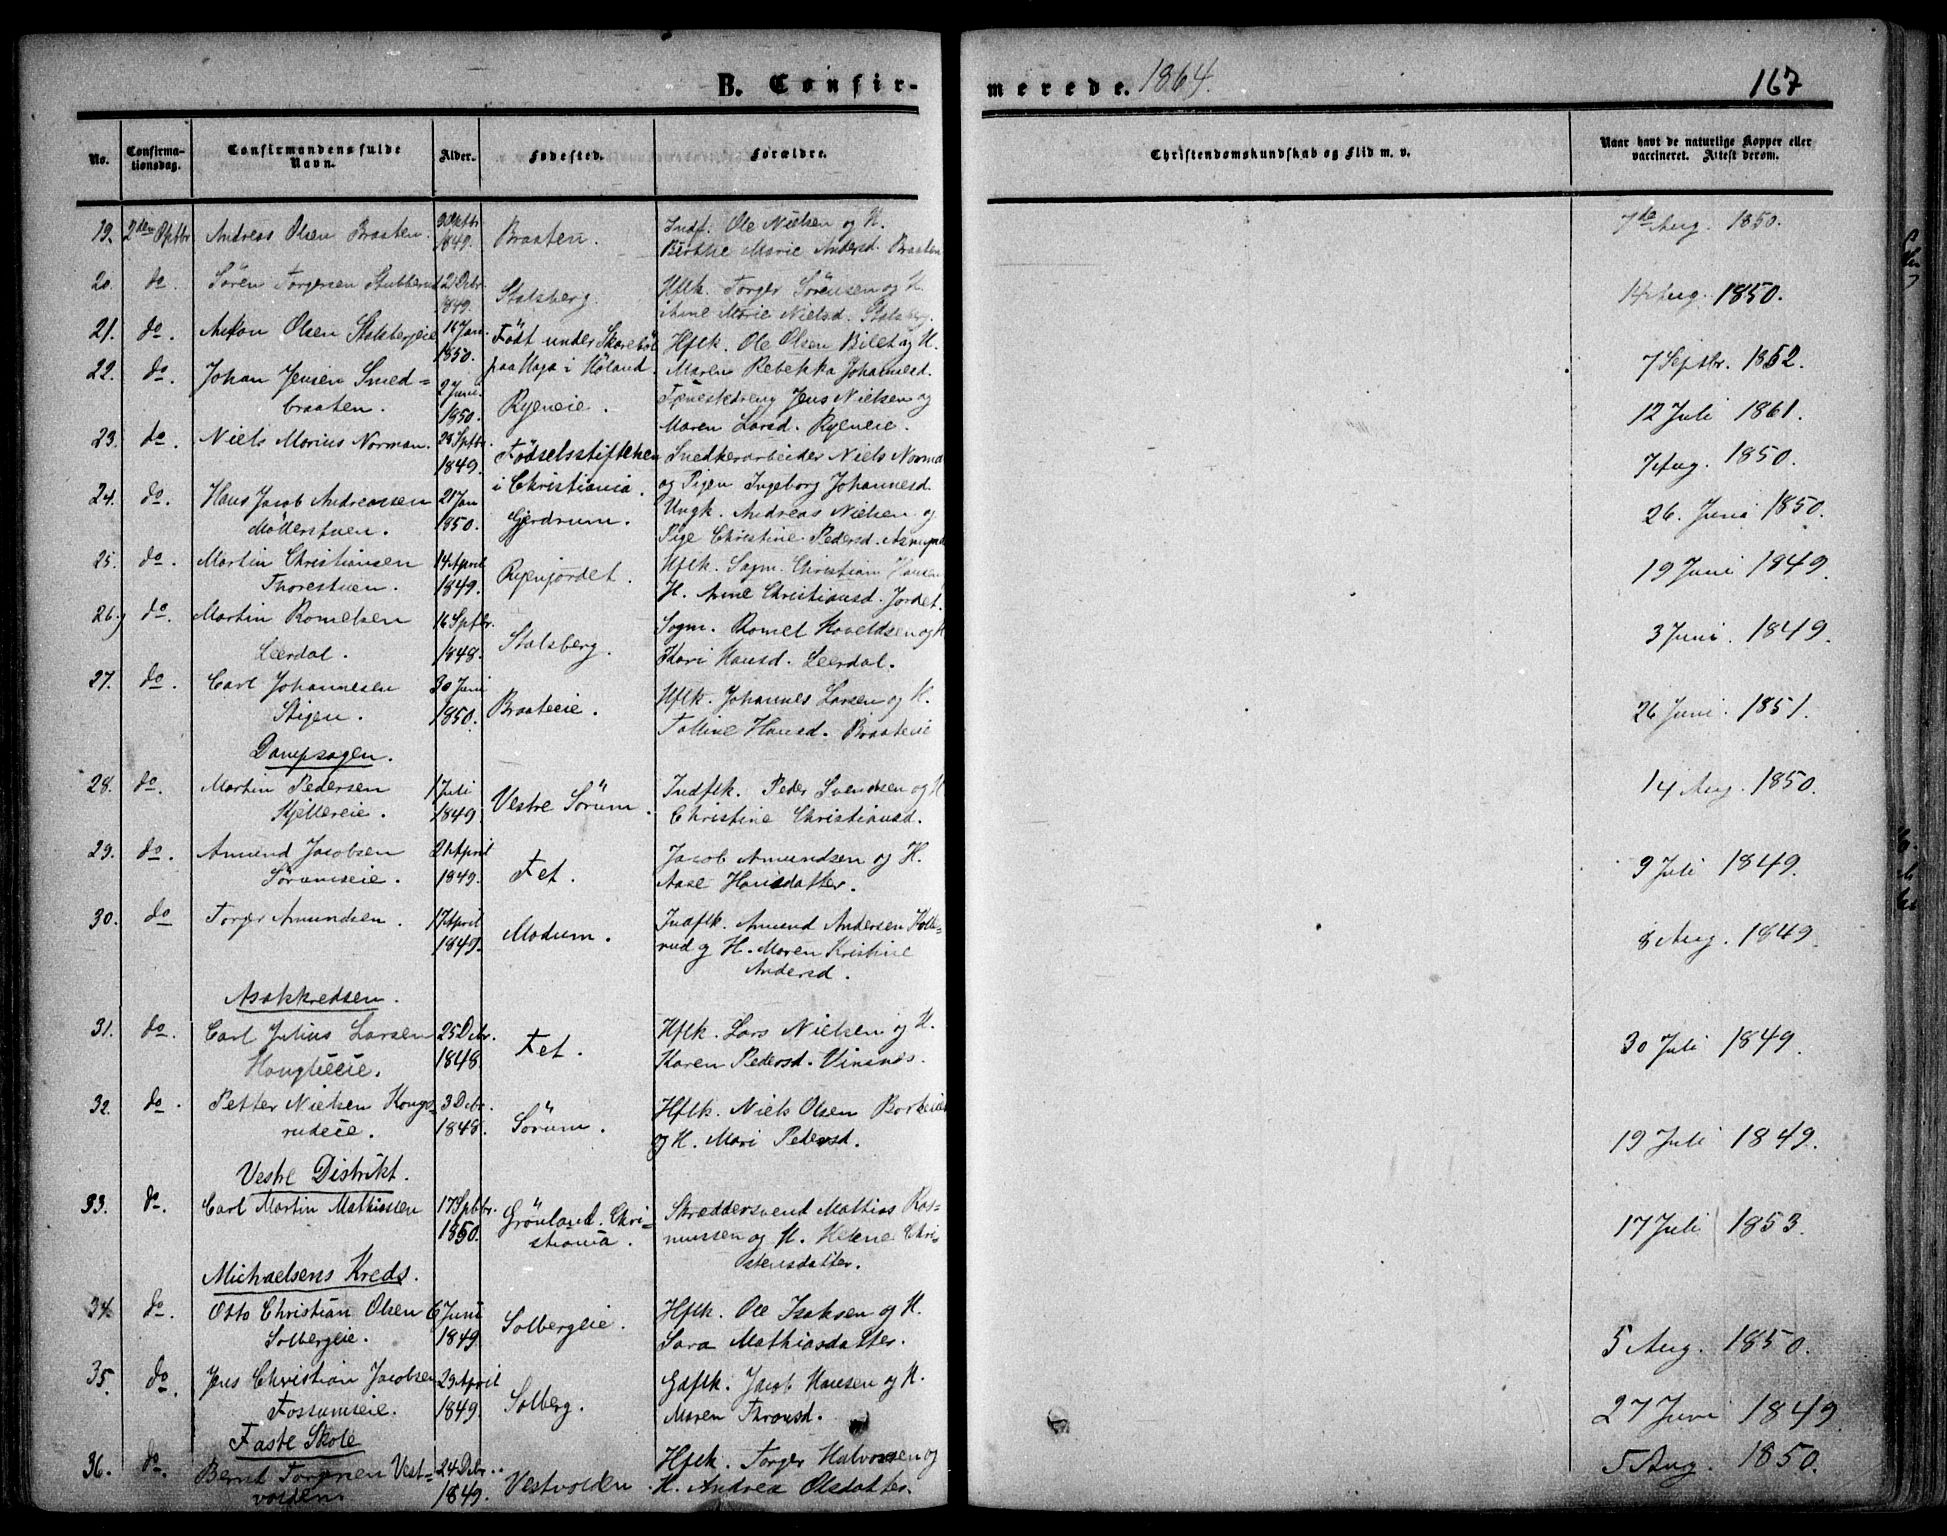 B. Confir-
merede. 1864.
167
No.
Confirma-
tionsdag.
Confirmandens fulde
Navn.
Alder.
Fødested.
Forældre.
Christendomskundskab og Flid m. v.
Naar havt de naturlige Kopper eller
vaccineret. Attest derom.
19. 2den Aug. 1849. Andreas Olsen Braaten. Braaten. Indf. Ole Nielsen og H.
Berthe Marie Andersd. Braaten
7de Aug. 1850.
20. do. Sören Torgersen Stubberud 21 Debr.
1849. Stalsberg. Hflk. Torger Sörensen og H.
Anne Marie Nielsd. Stalsberg.
14 Aug. 1850.
21. do. Anton Olsen Stalsbergeie 16 Jan.
1850. Födt under Skarebøl
paa Haga i Höland. Hflk. Ole Olsen Bilet og H.
Maren Rebekka Johannesd.
7 Septbr. 1852.
22. do. Johan Jensen Smed=
braaten. 2 Juni
1850. Ryeneie. Tjenestedreng Jens Nielsen og
Maren Larsd. Ryeneie.
12 Juli 1861.
23. do. Niels Marius Norman. 28 Sptbr.
1849. Födselsstiftelsen
i Christiania. Snedkerarbeider Niels Norman
og Pigen Ingeborg Johannesd.
7 Aug. 1850.
24. do. Hans Jacob Andreassen
21 Jan
1850. Gjerdrum. Ungk. Andreas Nielsen og
Pige Christine Pedersd.
26. Juni 1850.
25. do. Martin Christiansen
Thorestuen. 14 April
1849. Ryenjordet. Hflk. Sagm. Christian Hansen
H. Anne Christiansd. Jordet.
19 Juni 1849.
26. do. Martin Romelsen
Leerdal. 16 Sptbr.
1848. Stalsberg. Sagm. Romel og H
Kari Hansd. Leerdal.
3 Juni 1849.
27. do. Carl Johannesen
Stigen. 30 Juni
1850. Braateeie. Hflk. Johannes Larsen og H.
Talline Hansd. Braateeie
26 Juni 1851.
Dampsagen.
28. do. Martin Pedersen
Kjellereie. 1 Juli
1849. Vestre Sörum. Indflk. Peder Svendsen og H
Christine Christiansd.
14 Aug. 1850.
29. do. Amund Jacobsen
Sörumseie. 21 April
1849. Fet. Jacob Amundsen og H.
Aase Hansdatter.
9 Juli 1849.
30. do Torger Amundsen. 17 April
1849. Modum. Indflk. Amund Andersen Holle-
rud og H. Maren Kristine
Andersd.
8 Aug. 1849.
Asakkredsen.
31. do. Carl Julius Larsen
Hauglieeie. 25 Debr.
1848. Fet. Hflk. Lars Nielsen og H.
Karen Pedersd. Vinsnæs.
30 Juli 1849.
32. do. Petter Nielsen Kongs-
rudeie. 3 Debr.
1848. Sörum. Hflk. Niels Olsen Borkeeie
og H. Mari Pedersd.
19 Juli 1849.
Vestre Distrikt.
33. do. Carl Martin Mathiassen 17 Sptbr.
1850. Grönland. Chri-
stiania. Skræddersvend Mathias Ras-
mussen og H. Helene Chri-
stensdatter.
17 Juli 1853.
Michaelsens Kreds.
34. do. Otto Christian Olsen
Solbergeie. 6 Juni
1849. Solbergeie. Hflk. Ole Isaksen og H.
Sara Mathiasdatter.
5 Aug. 1850.
35. do. Jens Christian Jacobsen
Fossumseie. 29 April
1849. Solberg. Gaflk. Jacob Hansen og H.
Maren Thronsd.
27 Juni 1849.
Faste Skole
36. do. Bernt Torgersen Vest-
volden. 24 Debr.
1849. Vestvolden. Hflk. Torger Halvorsen og
H. Andrea Olsdatter.
5 Aug. 1850.